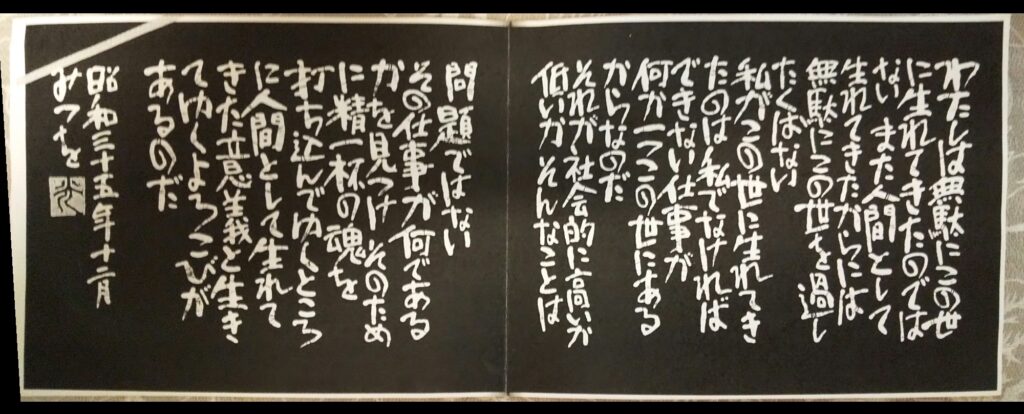 わたしは無駄にこの世
に生れてきたのでは
ない また人間として
生れてきたからには
無駄にこの世を過し
たくはない
私がこの世に生れてき
たのは私でなければ
できない仕事が
何か一つこの世にある
からなのだ
それが社会的に高いか
低いかそんなことは
問題ではない
その仕事が何である
かを見つけ そのため
に精一杯の魂を
打ち込んでゆくところ
に人間として生れて
きた意義と生き
てゆくよろこびが
あるのだ
昭和三十五年十二月
みつを